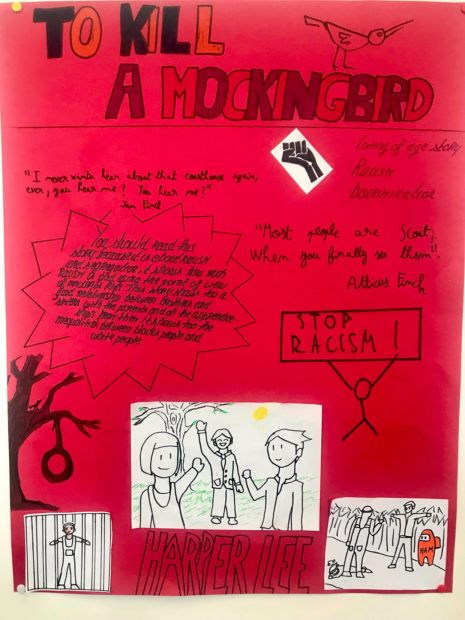 TO KILL
A MOCKINGBIRD
Coming of age story
Racism
Discrimination
"I never wanta hear about that courthouse again,
ever, you hear me? You hear me?"
Jem Finch
"Most people are Scout,
When you finally see them".
Atticus Finch
You should read this
story because it is about racism
and segregation, it shows how much
racism is bad using the point of view
of innocent kids. This story shows too a
good relationship between brothers and
sisters with the parents and all the apprentice
ships from them. It shows too the
inequalities between blacks people and
white people
STOP
RACISM!
HAM
HARPER LEE